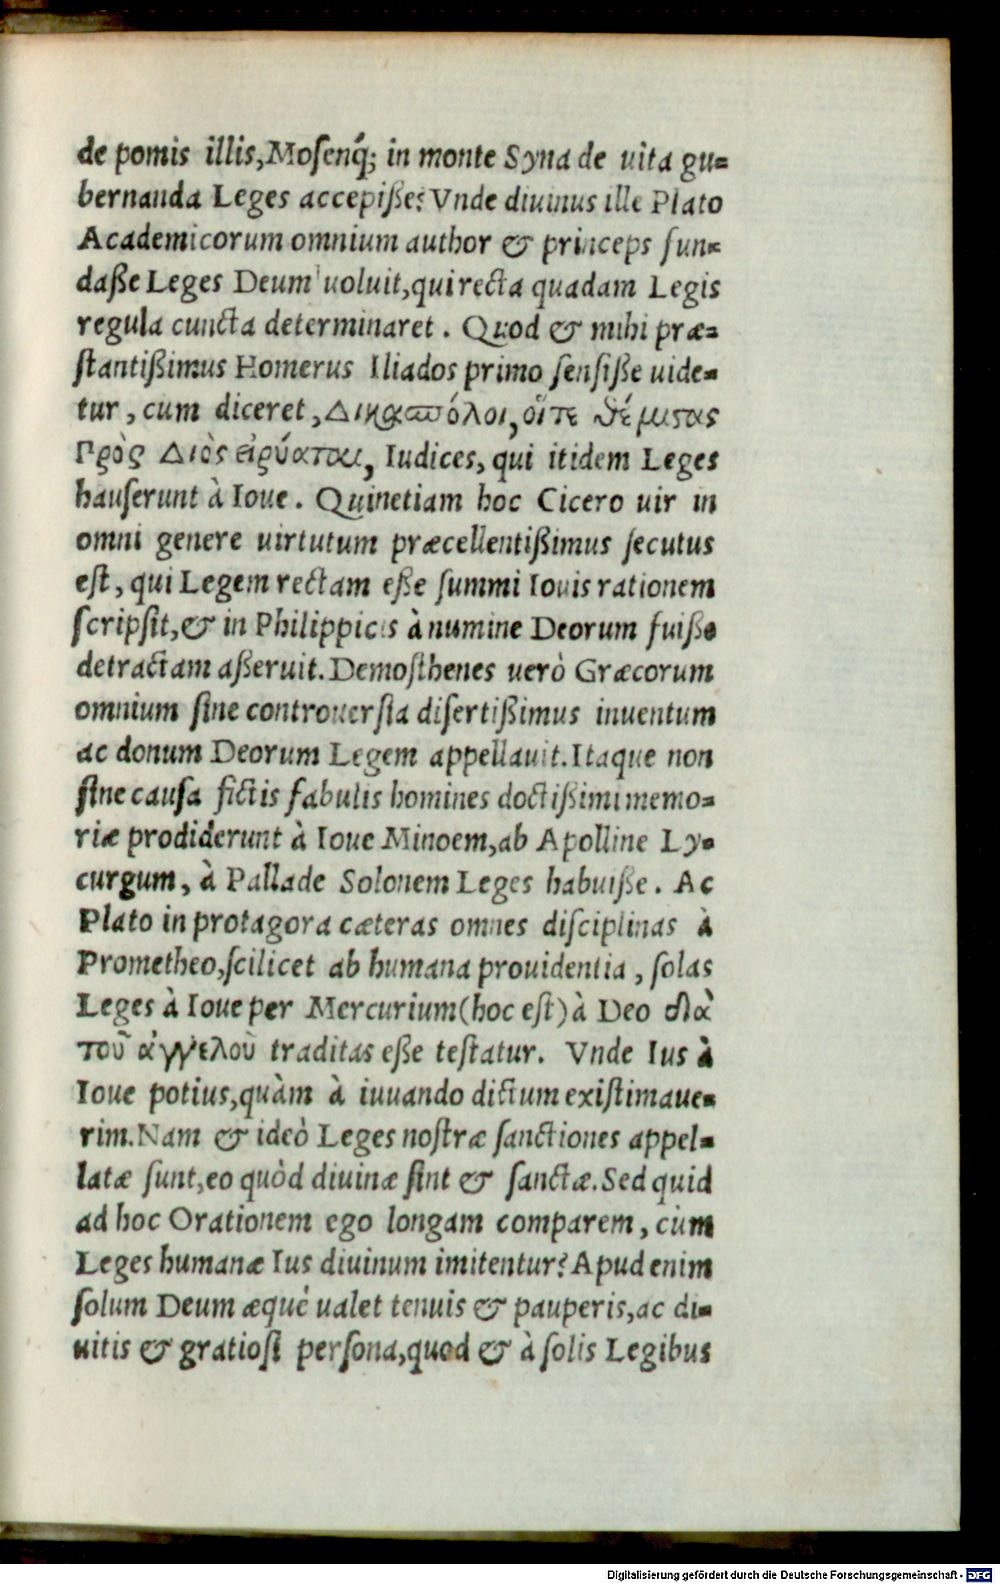 de pomis illis, Mosenq́; in monte Syna de uita gu-
bernanda Leges accepiße? Vnde diuinus ille Plato
Academicorum omnium author & princeps fun-
daße Leges Deum uoluit, qui recta quadam Legis
regula cuncta determinaret. Quod & mihi præ-
ſtantißimus Homerus Iliados primo ſenſiße uide-
tur, cum diceret, Δικασπόλοι, οἵτε θέμιστας
Πρὸς Διὸς εἰρύαται, Iudices, qui itidem Leges
hauſerunt à Ioue. Quinetiam hoc Cicero uir in
omni genere uirtutum præcellentißimus ſecutus
eſt, qui Legem rectam eße ſummi Iouis rationem
ſcripſit, & in Philippicis à numine Deorum fuiße
detractam aßeruit. Demoſthenes uerò Græcorum
omnium ſine controuerſia diſertißimus inuentum
ac donum Deorum Legem appellauit. Itaque non
ſine cauſa fictis fabulis homines doctißimi memo-
riæ prodiderunt à Ioue Minoem, ab Apolline Ly-
curgum, à Pallade Solonem Leges habuiße. Ac
Plato in protagora cæteras omnes diſciplinas à
Prometheo, ſcilicet ab humana prouidentia, ſolas
Leges à Ioue per Mercurium (hoc eſt) à Deo διὰ
τοῦ ἀγγελοῦ traditas eße teſtatur. Vnde Ius à
Ioue potius, quàm à iuuando dictum exiſtimaue-
rim. Nam & ideò Leges noſtræ ſanctiones appel-
latæ ſunt, eo quòd diuinæ ſint & ſanctæ. Sed quid
ad hoc Orationem ego longam comparem, cùm
Leges humanæ Ius diuinum imitentur? Apud enim
ſolum Deum æquè ualet tenuis & pauperis, ac di-
uitis & gratioſi perſona, quod & à ſolis Legibus
Digitalisierung gefördert durch die Deutsche Forschungsgemeinschaft - DFG